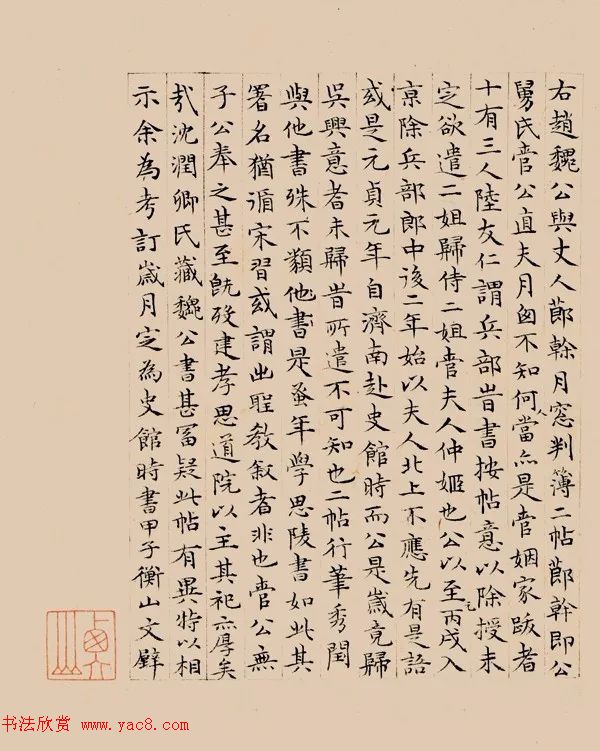 右趙魏公與丈人節幹月窓判簿二帖節幹即公
舅氏管公直夫月囱不知何人當亦是管姻家跋者
十有三人陸友仁謂兵部旹書按帖意以除授未
定欲遣二姐歸侍二姐管夫人仲姬也公以至元丙戌入
京除兵部郎中後二年始以夫人北上不應先有是語
或是元貞元年自濟南赴史館時而公是歲竟歸
吳興意者未歸旹所遣不可知也二帖行筆秀閏
與他書殊不類他書是蚤年學思陵書如此其
署名猶循宋習或謂出聖教敘者非也管公無
子公奉之甚至既歿建孝思道院以主其祀亦厚矣
哉沈潤卿氏藏魏公書甚富疑此帖有異特以相
示余為考訂歲月定為史館時書甲子衡山文壁
书法欣赏 www.yac8.com